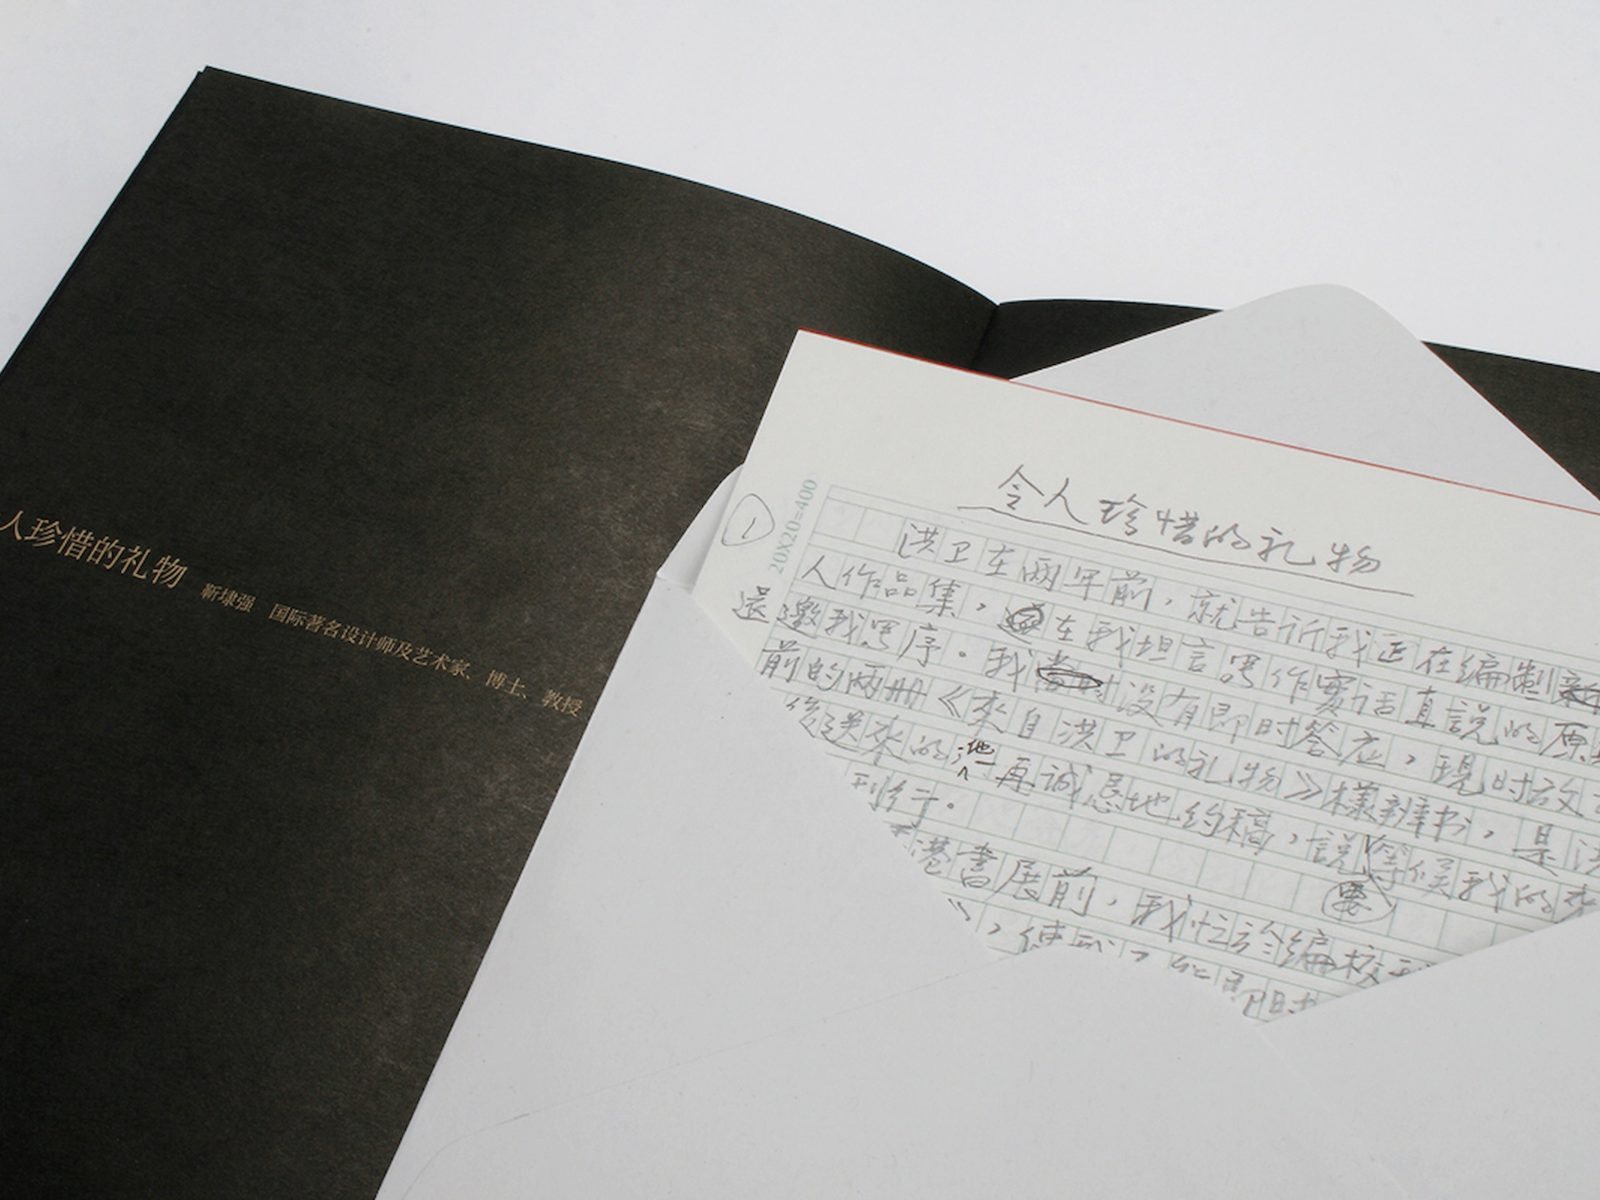 人珍惜的礼物 靳埭强 国际著名设计师及艺术家、博士、教授
令人珍惜的礼物
1
20X20=400
洪卫在两年前，就告诉我正在编制
人作品集，在我坦言写作实话直説的原
還邀我写序。我没有即时答应，現时
前的两册《来自洪卫的礼物》樣辦书，是
送来的他再诚恳地约稿，説要等候我的
刊行。
港書展前，我忙於編校
，使